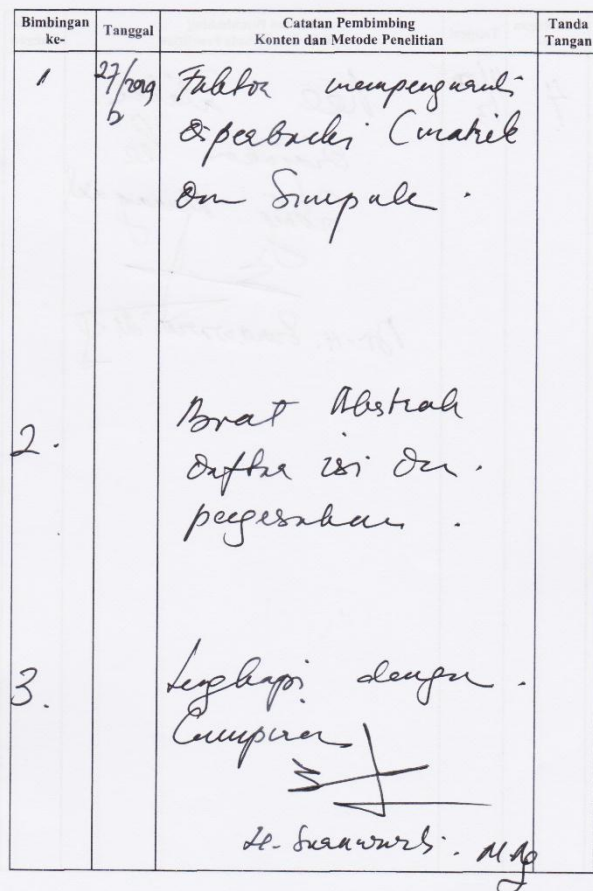 Bimbingan ke-
Tanggal
Catatan Pembimbing
Konten dan Metode Penelitian
Tanda Tangan
1
27/2019
Faktor mempengaruhi
diperbaiki (matrik
dan Simpule.
2.
Buat Abstrak
daftar isi dan.
pengesahan.
3.
Lengkapi dengan.
Lampiran
M.Ag